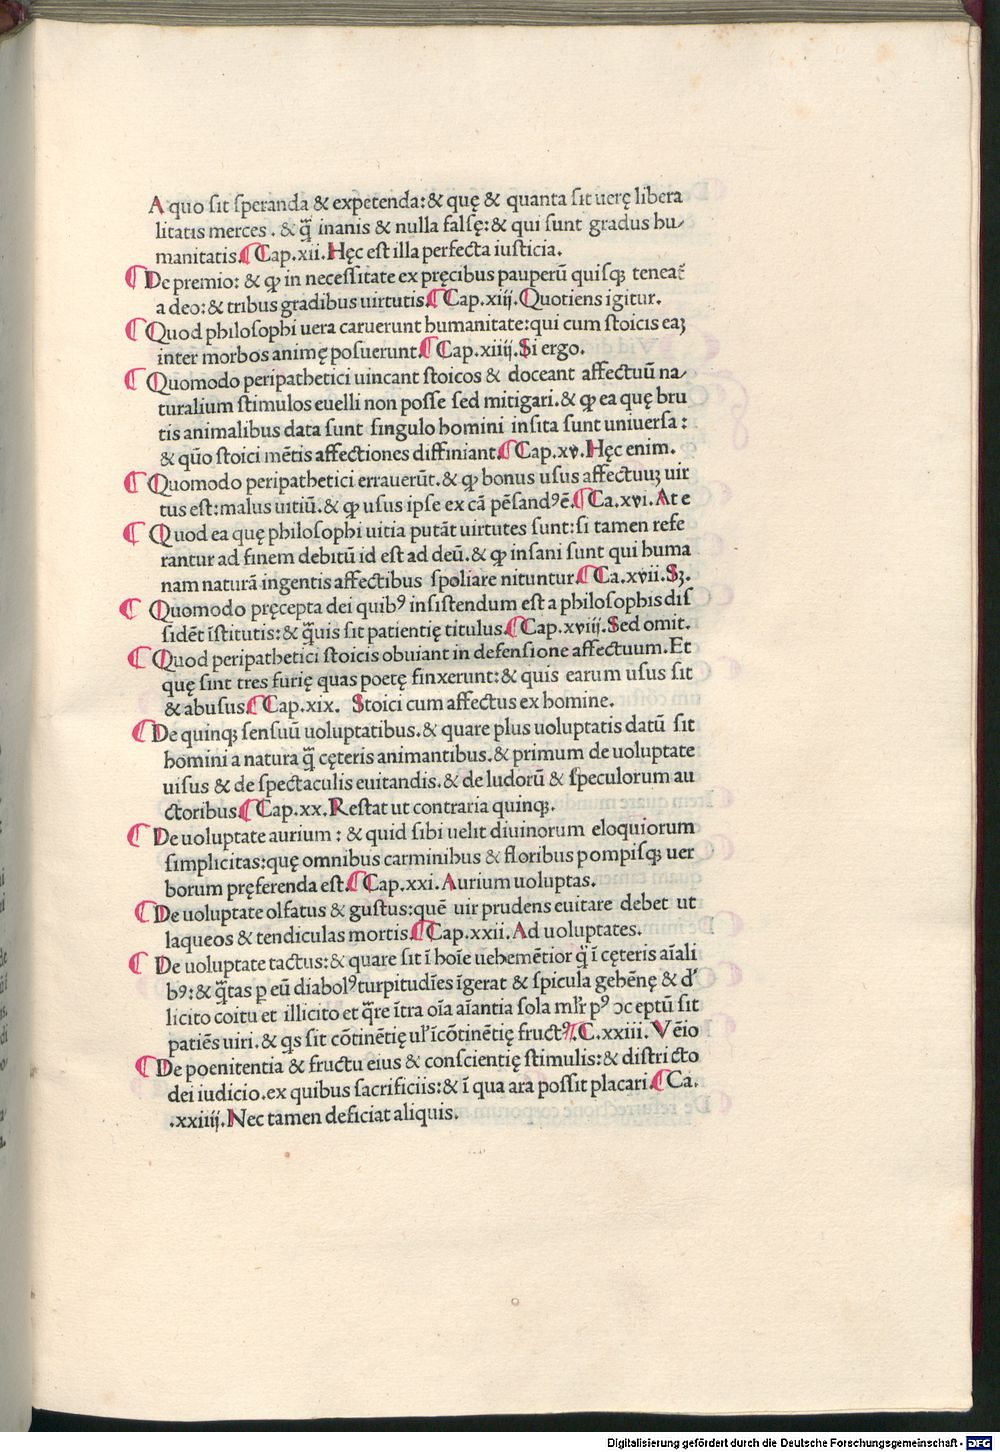 A quo sit speranda & expetenda: & quę & quanta sit uerę libera
litatis merces. & q̄̃ inanis & nulla falsę: & qui sunt gradus hu⸗
manitatis. ¶ Cap. xii. Hęc est illa perfecta iusticia.
¶ De premio: & ꝙ in necessitate ex pręcibus pauperū quisqꝫ teneat̃
a deo: & tribus gradibus uirtutis. ¶ Cap. xiij. Quotiens igitur.
¶ Quod philosophi uera caruerunt humanitate: qui cum stoicis eaꝫ
inter morbos animę posuerunt. ¶ Cap. xiiij. Si ergo.
¶ Quomodo peripathetici uincant stoicos & doceant affectuū na⸗
turalium stimulos euelli non posse sed mitigari. & ꝙ ea quę bru
tis animalibus data sunt singulo homini insita sunt uniuersa:
& quō stoici mētis affectiones diffiniant. ¶ Cap. xv. Hęc enim.
¶ Quomodo peripathetici errauerūt. & ꝙ bonus usus affectuuꝫ uir
tus est: malus uitiū. & ꝙ usus ipse ex cā pēsandꝰ ē. ¶ Ca. xvi. At e
¶ Quod ea quę philosophi uitia putāt uirtutes sunt: si tamen refe
rantur ad finem debitū id est ad deū. & ꝙ insani sunt qui huma
nam naturā ingentis affectibus spoliare nituntur. ¶ Ca. xvii. Sꝫ.
¶ Quomodo pręcepta dei quibꝰ insistendum est a philosophis dis
sidēt īstitutis: & q̄uis sit patientię titulus. ¶ Cap. xviij. Sed omit.
¶ Quod peripathetici stoicis obuiant in defensione affectuum. Et
quę sint tres furię quas poetę finxerunt: & quis earum usus sit
& abusus. ¶ Cap. xix. Stoici cum affectus ex homine.
¶ De quinqꝫ sensuū uoluptatibus. & quare plus uoluptatis datū sit
homini a natura q̄̃ cęteris animantibus. & primum de uoluptate
uisus & de spectaculis euitandis. & de ludorū & speculorum au
ctoribus. ¶ Cap. xx. Restat ut contraria quinqꝫ.
¶ De uoluptate aurium: & quid sibi uelit diuinorum eloquiorum
simplicitas: quę omnibus carminibus & floribus pompisqꝫ uer
borum pręferenda est. ¶ Cap. xxi. Aurium uoluptas.
¶ De uoluptate olfatus & gustus: quē uir prudens euitare debet ut
laqueos & tendiculas mortis. ¶ Cap. xxii. Ad uoluptates.
¶ De uoluptate tactus: & quare sit ī hoīe uehemētior q̄̃ ī cęteris aīali
bꝰ: & q̄̃tas ꝑ eū diabolꝰ turpitudīes īgerat & spicula gehēnę & d'
licito coitu et illicito et q̄re ītra oīa aīantia sola mlīr pꝰ ↄceptū sit
patiēs uiri. & qs sit cōtinētię ul' īcōtinētię fructꝰ. ¶ C. xxiii. Vēio
¶ De poenitentia & fructu eius & conscientię stimulis: & districto
dei iudicio. ex quibus sacrificiis: & ī qua ara possit placari. ¶ Ca.
.xxiiij. Nec tamen deficiat aliquis.
Digitalisierung gefördert durch die Deutsche Forschungsgemeinschaft - DFG